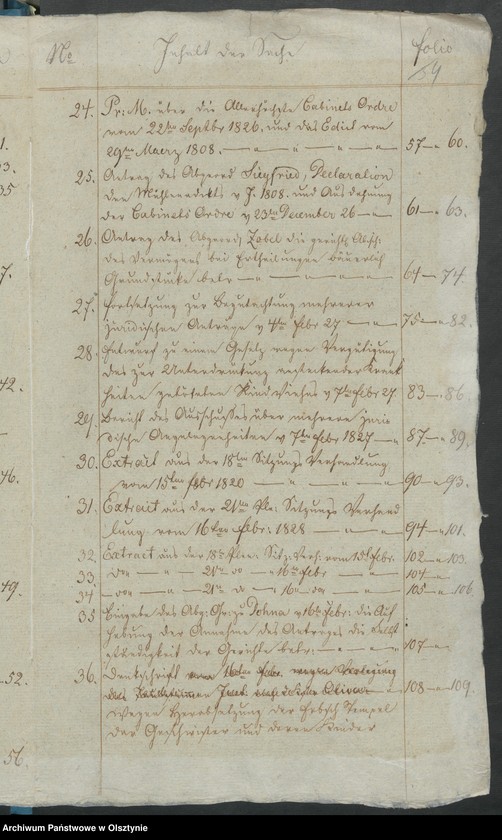 No Inhalt der Sache folio
24. Pr: M. über die Allerhöchste Cabinets Ordre
vom 22ten Septbr 1826. und das Edict vom
29ten Maerz 1808. 57 60.
25. Antrag des Abgeord Siegfried, Declaration
des Mühlenedikts v J. 1808. und Ausdehnung
der Cabinets Ordre v 23ten December 26 61 63.
26. Antrag des Abgeord Zobel die gerichtl Absch:
des Vermögens bei Ertheilungen bäuerlich
Grundstücke betr 64 74.
27. Fortsetzung zur Begutachtung mehrerer
juridischen Antraege v 4ten Febr 27 75 82.
28. Entwurf zu einem Gesetz wegen Vergütigung
des zur Unterdrückung ansteckender Krank
heiten getödteten Rindviehes v 7ten Febr 27 83 86.
29. Bericht des Ausschusses über mehrere juri
dische Angelegenheiten v 7ten Febr 1827 87. 89.
30. Extract aus der 18ten Sitzungs Verhandlung
vom 15ten Febr 1820 90 93.
31. Extract aus der 21ten Ple: Sitzungs Verhand
lung vom 16ten Febr: 1828 94 101.
32. Extract aus der 18t Plen: Sitz: Verh: vom 15t Febr. 102 103
33. 21t 16t Febr 104
34 21t 16 105 106.
35 Eingabe des Abg: Dohna v 16t Febr: die Auf
hebung der Annahme des Antrages die
der Gerichte betr: 107
36. Denkschrift vom 16ten Febr. wegen Verlegung
des 108 109.
Wegen Herabsetzung der Erbsch Stempel
der Geschwister und deren Kinder
1.
7.
42.
46.
49.
52.
56.
Archiwum Państwowe w Olsztynie